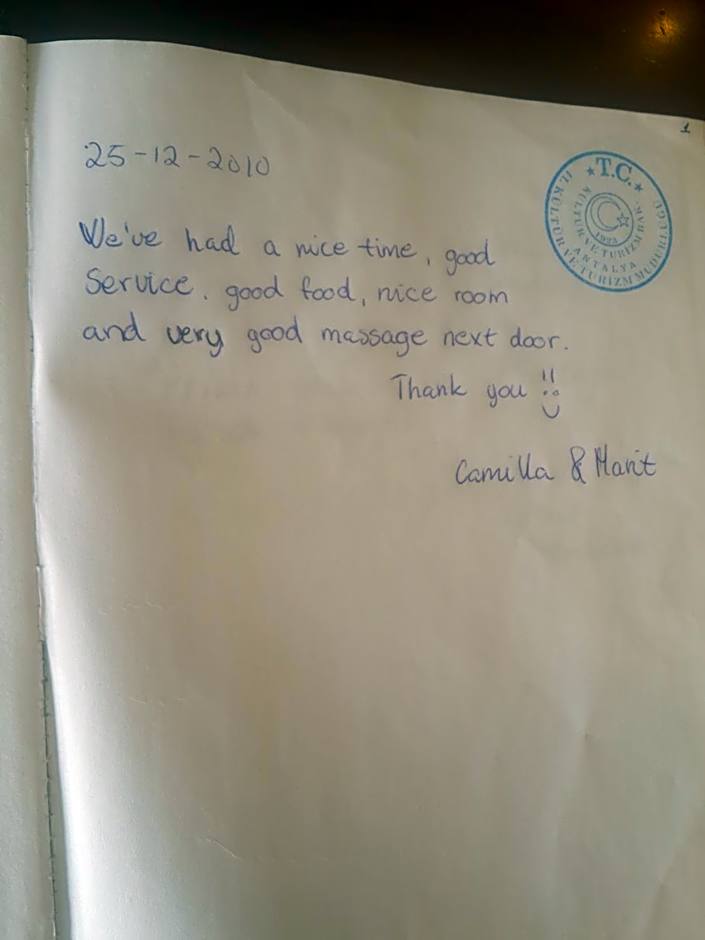 1
25-12-2010
★T.C.★
İL KÜLTÜR VE TURİZM MÜDÜRLÜĞÜ
KÜLTÜR VE TURİZM BAK.
1923
ANTALYA
We've had a nice time, good
Service. good food, nice room
and very good massage next door.
Thank you !! :)
Camilla & Marit